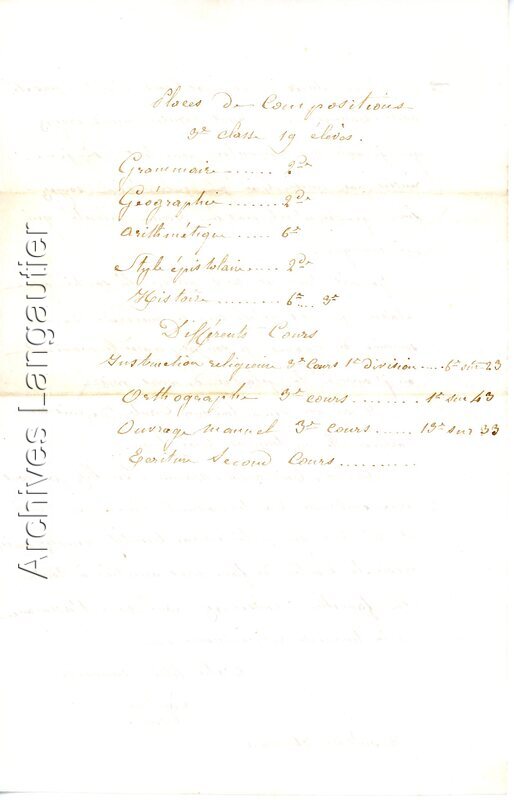 Places de Compositions
3e classe 19 élèves.
Grammaire ....... 2de
Géographie ....... 2de
Arithmétique ..... 6e
Style épistolaire ..... 2de
Histoire .......... 6e .... 3e
Différents Cours
Instruction religieuse 3e Cours 1e division .... 6e sur 23
Orthographe 3e cours ......... 1e sur 43
Ouvrage manuel 3e cours ...... 13e sur 33
Ecriture Second Cours ..........
Archives Langautier